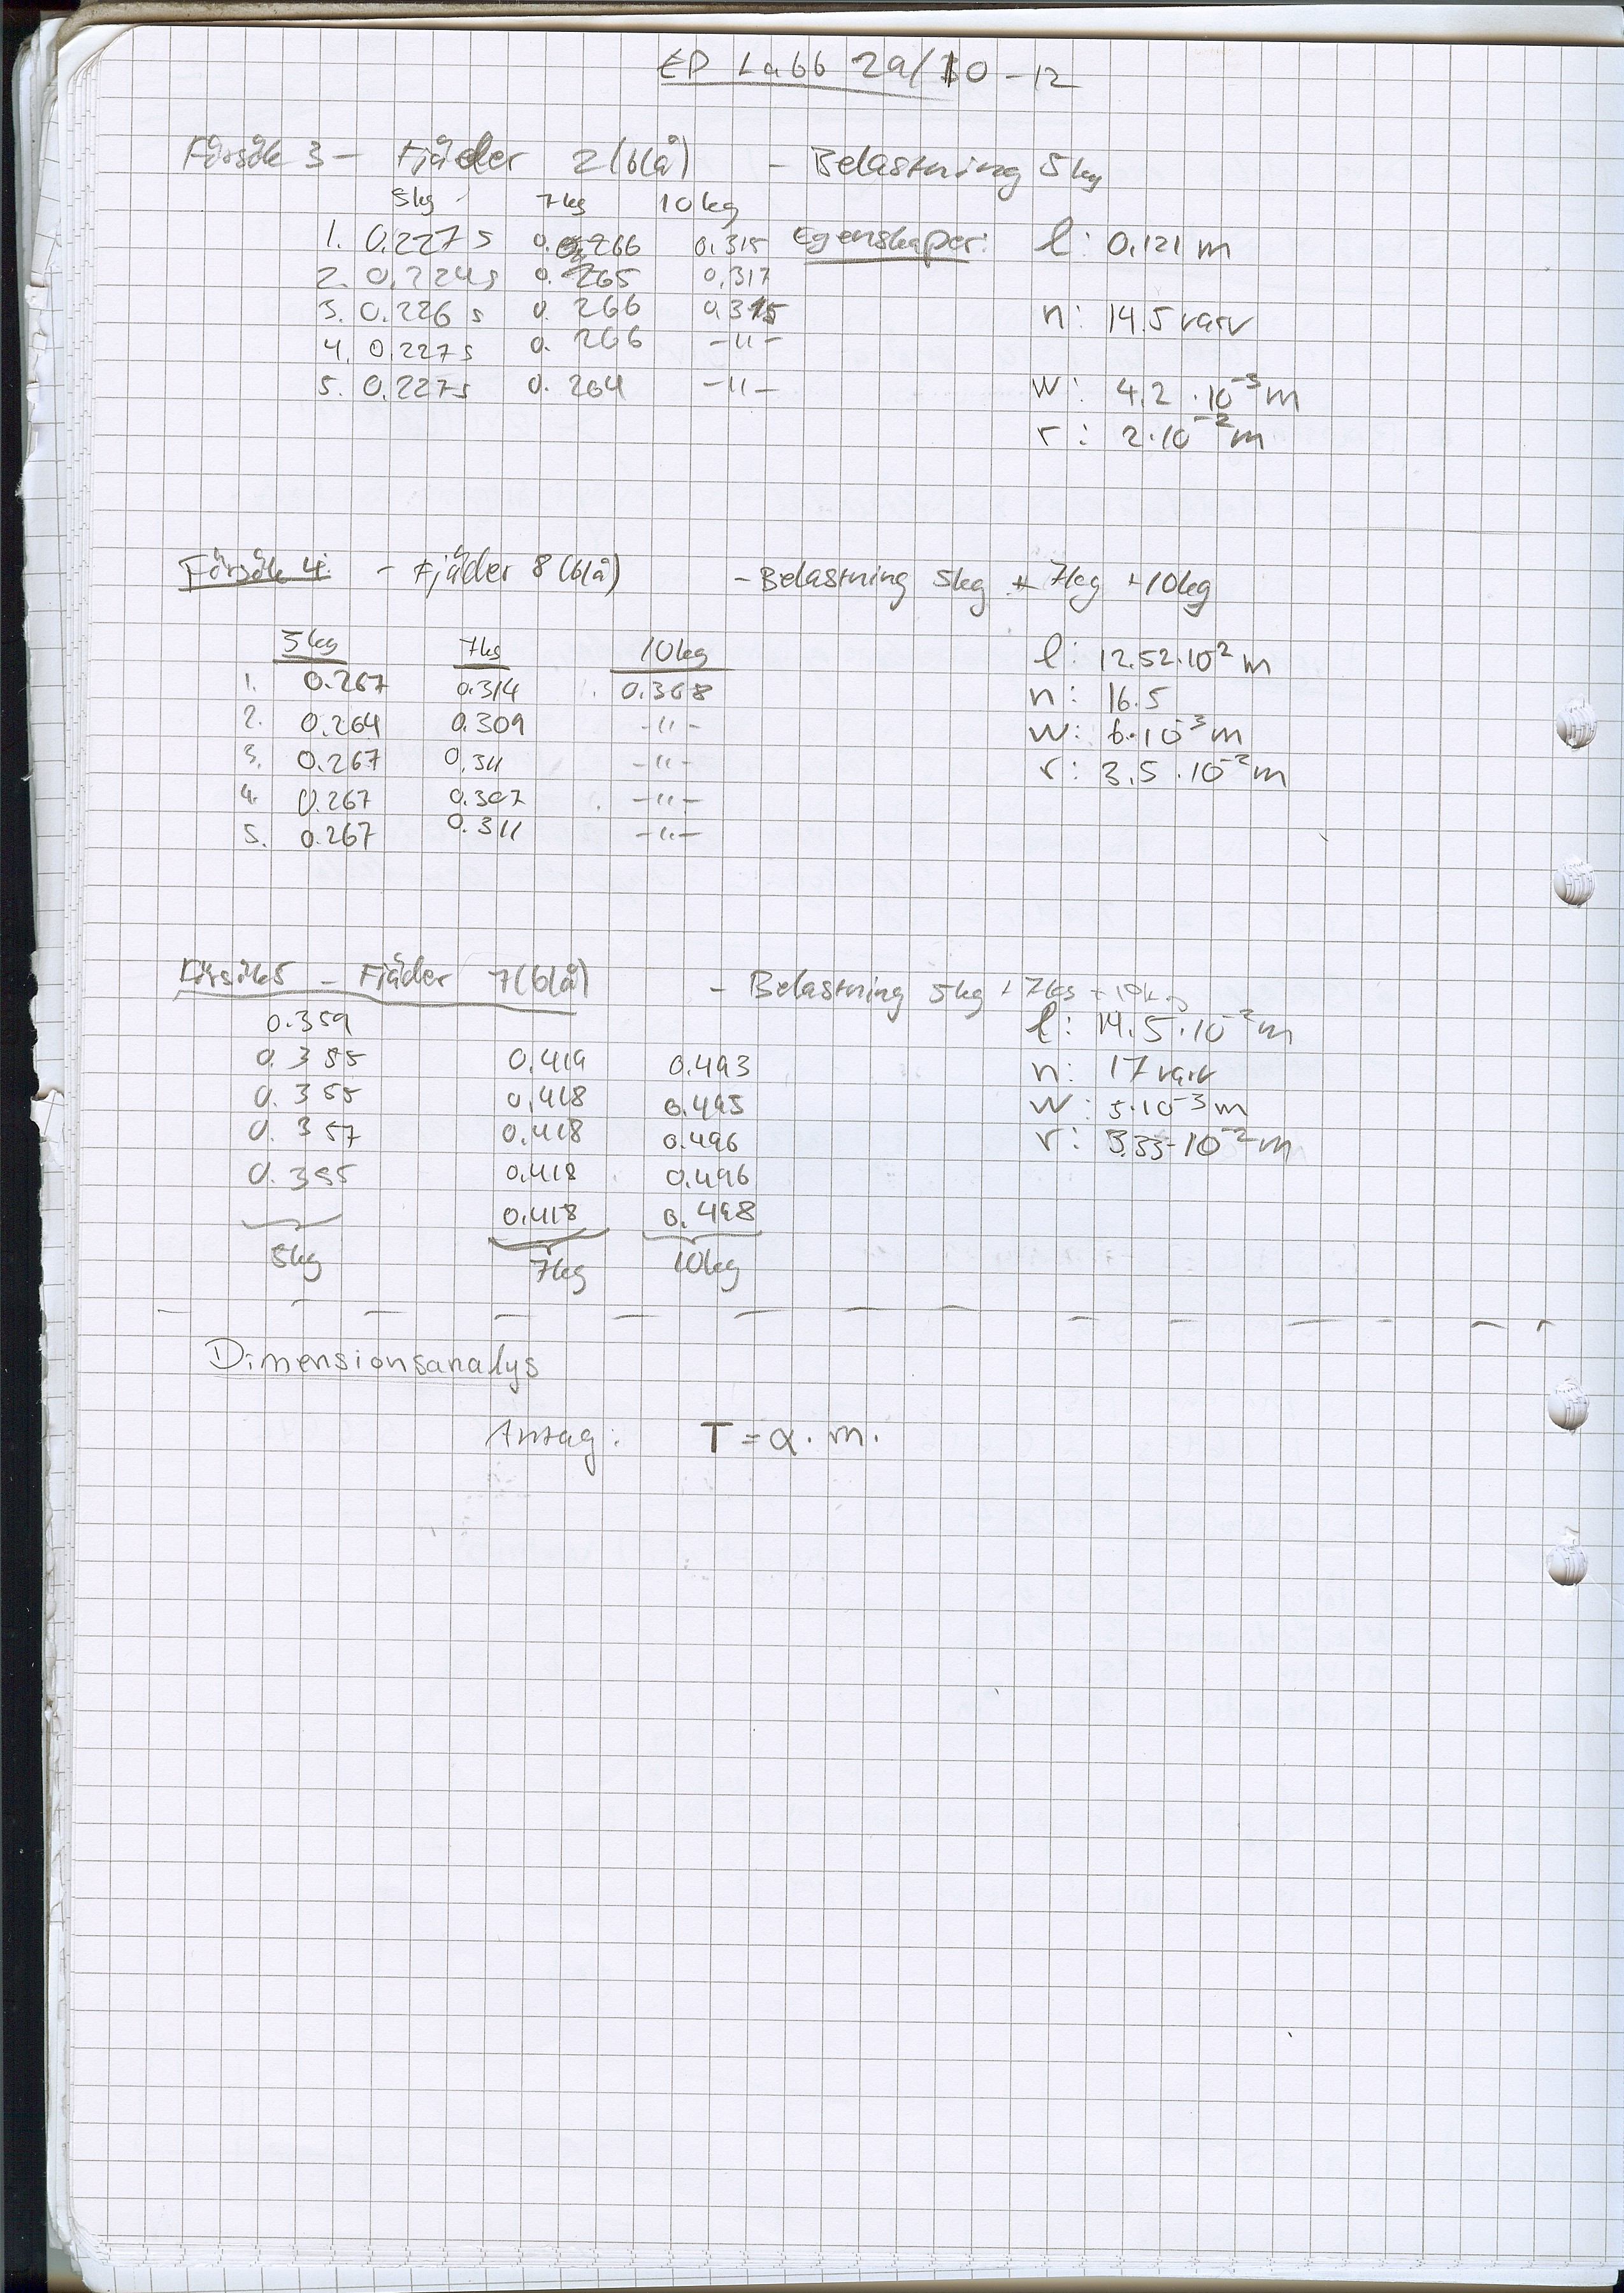 EP Labb 29/10-12
Försök 3 - Fjäder 2(blå) - Belastning 5kg
5kg 7kg 10kg
1. 0.227s 0.266 0.315 Egenskaper: l: 0.121 m
2. 0.224s 0.265 0.317
3. 0.226s 0.266 0.315 n: 14.5 varv
4. 0.227s 0.266 -"-
5. 0.227s 0.264 -"- w: 4.2·10^-3 m
r: 2·10^-2 m
Försök 4: - Fjäder 8(blå) - Belastning 5kg + 7kg + 10kg
5kg 7kg 10kg l: 12.52·10^2 m
1. 0.267 0.314 0.368 n: 16.5
2. 0.264 0.309 -"- w: 6·10^-3 m
3. 0.267 0.311 -"- r: 3.5·10^-2 m
4. 0.267 0.307 -"-
5. 0.267 0.311 -"-
Försök 5 - Fjäder 7(blå) - Belastning 5kg + 7kg + 10kg
0.359 l: 14.5·10^-2 m
0.355 0.419 0.493 n: 17 varv
0.355 0.418 0.495 w: 5·10^-3 m
0.357 0.418 0.496 r: 3.33·10^-2 m
0.355 0.418 0.496
0.418 0.498
5kg 7kg 10kg
Dimensionsanalys
Antag: T = α · m ·